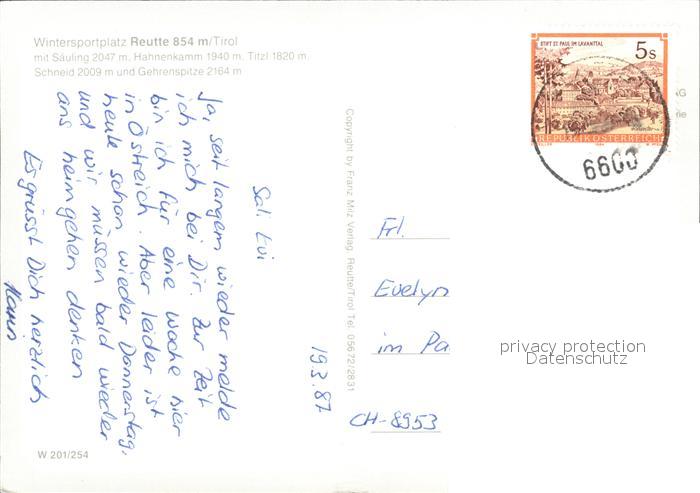 Wintersportplatz Reutte 854 m/Tirol
mit Säuling 2047 m, Hahnenkamm 1940 m, Titzl 1820 m,
Schneid 2009 m und Gehrenspitze 2164 m
Sal. Evi
Ja, seit langem wieder melde
ich mich bei Dir. Zur Zeit
bin ich für eine Woche hier
in Östreich. Aber leider ist
heute schon wieder Donnerstag,
und wir müssen bald wieder
ans heimgehen denken
Es grüsst Dich herzlich
19.3.87
W 201/254
Copyright by Franz Milz Verlag, Reutte/Tirol Tel. 05672/2831
STIFT ST. PAUL IM LAVANTTAL
5 S
REPUBLIK ÖSTERREICH
6600
Frl.
Evelyn
im Pa
CH-8953
privacy protection
Datenschutz